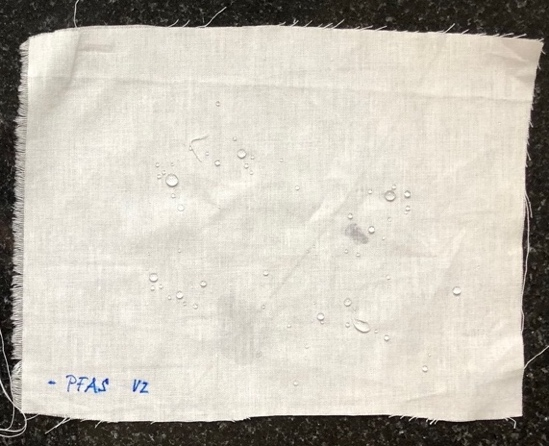 - PFAS V2